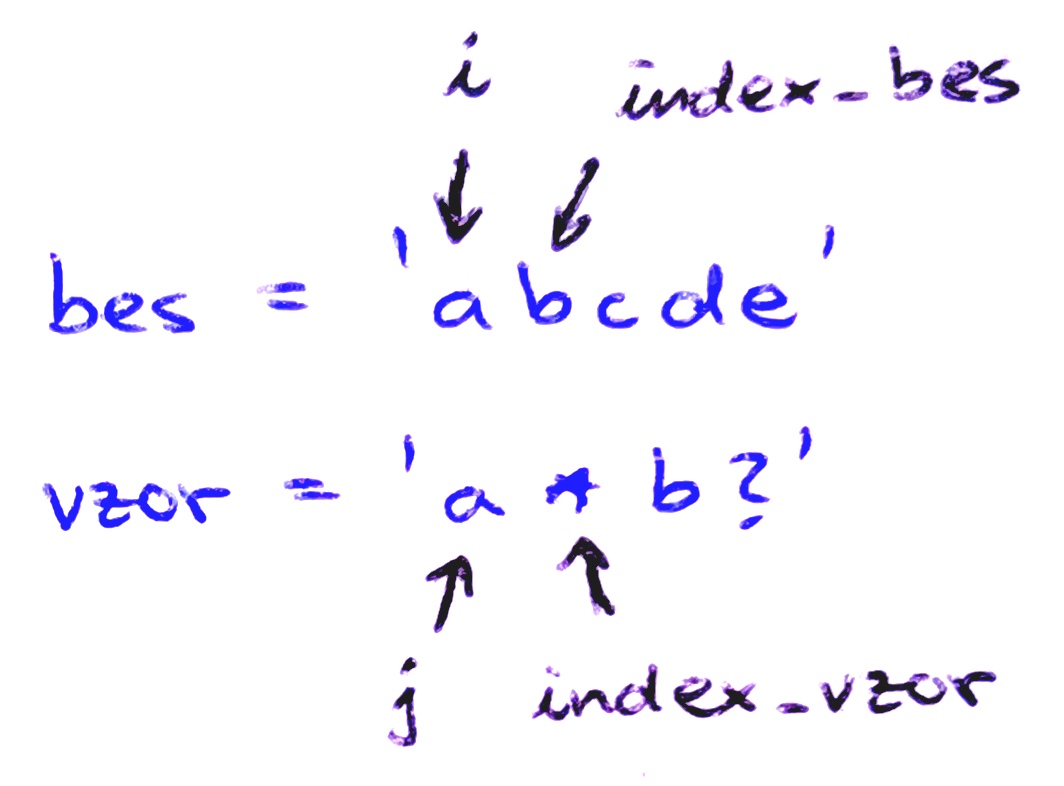 i index_bes
bes = 'abcde'
vzor = 'a*b?'
j index_vzor